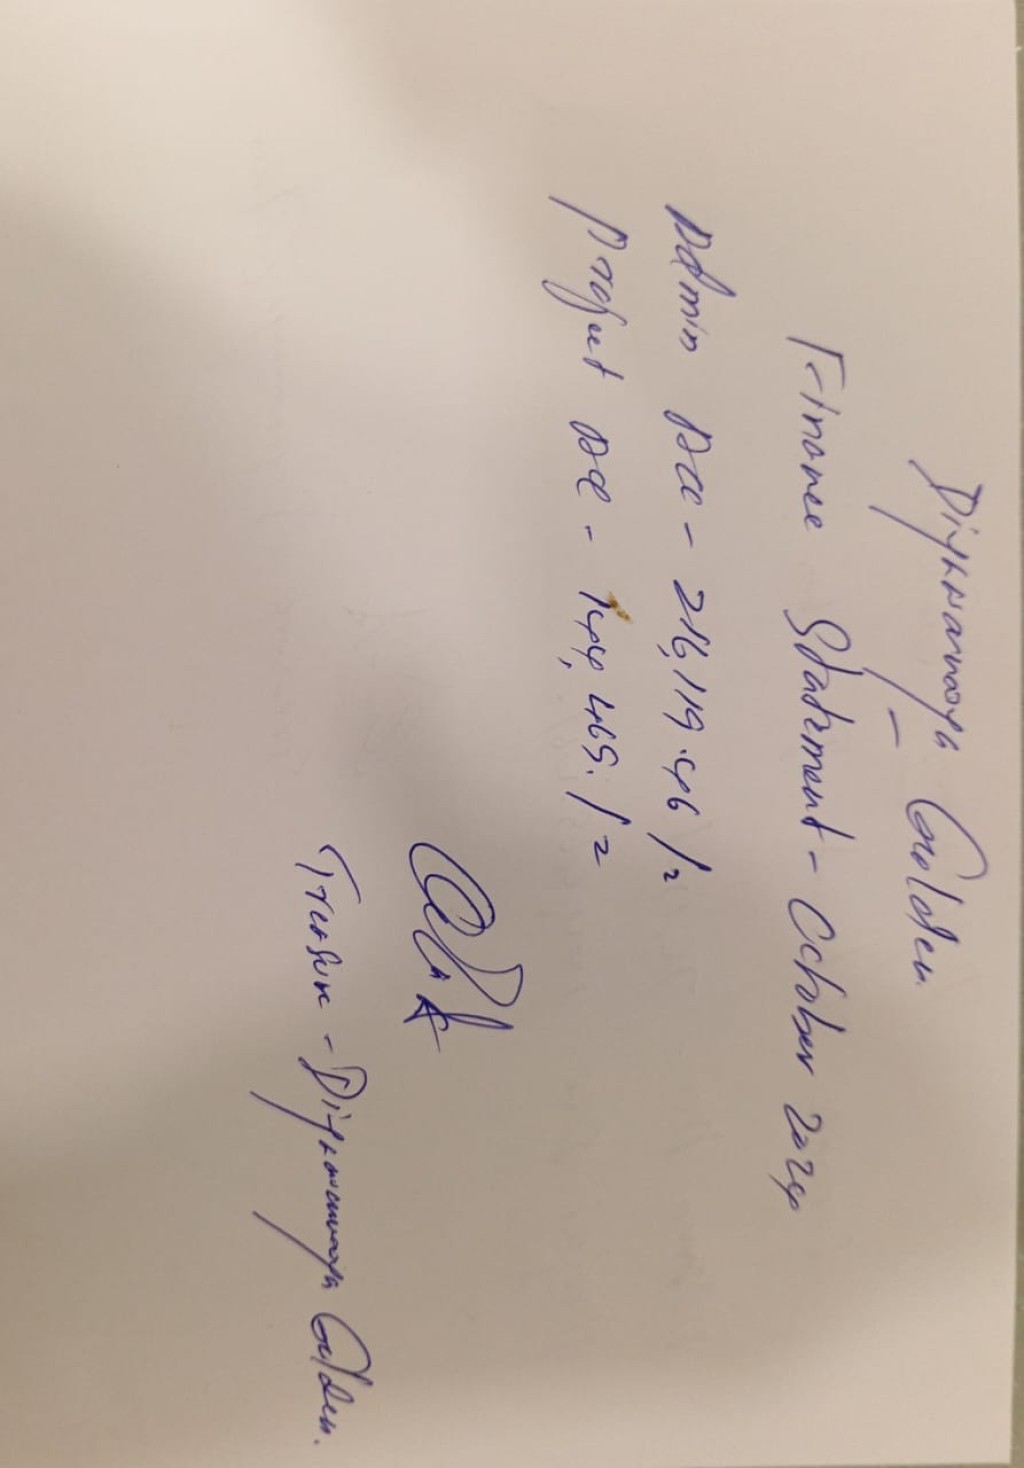 Golden
Finance Statement - October 2024
Admin Acc - 216,119.46 /=
Project Acc - 144,465. /=
Treasurer - Golden.